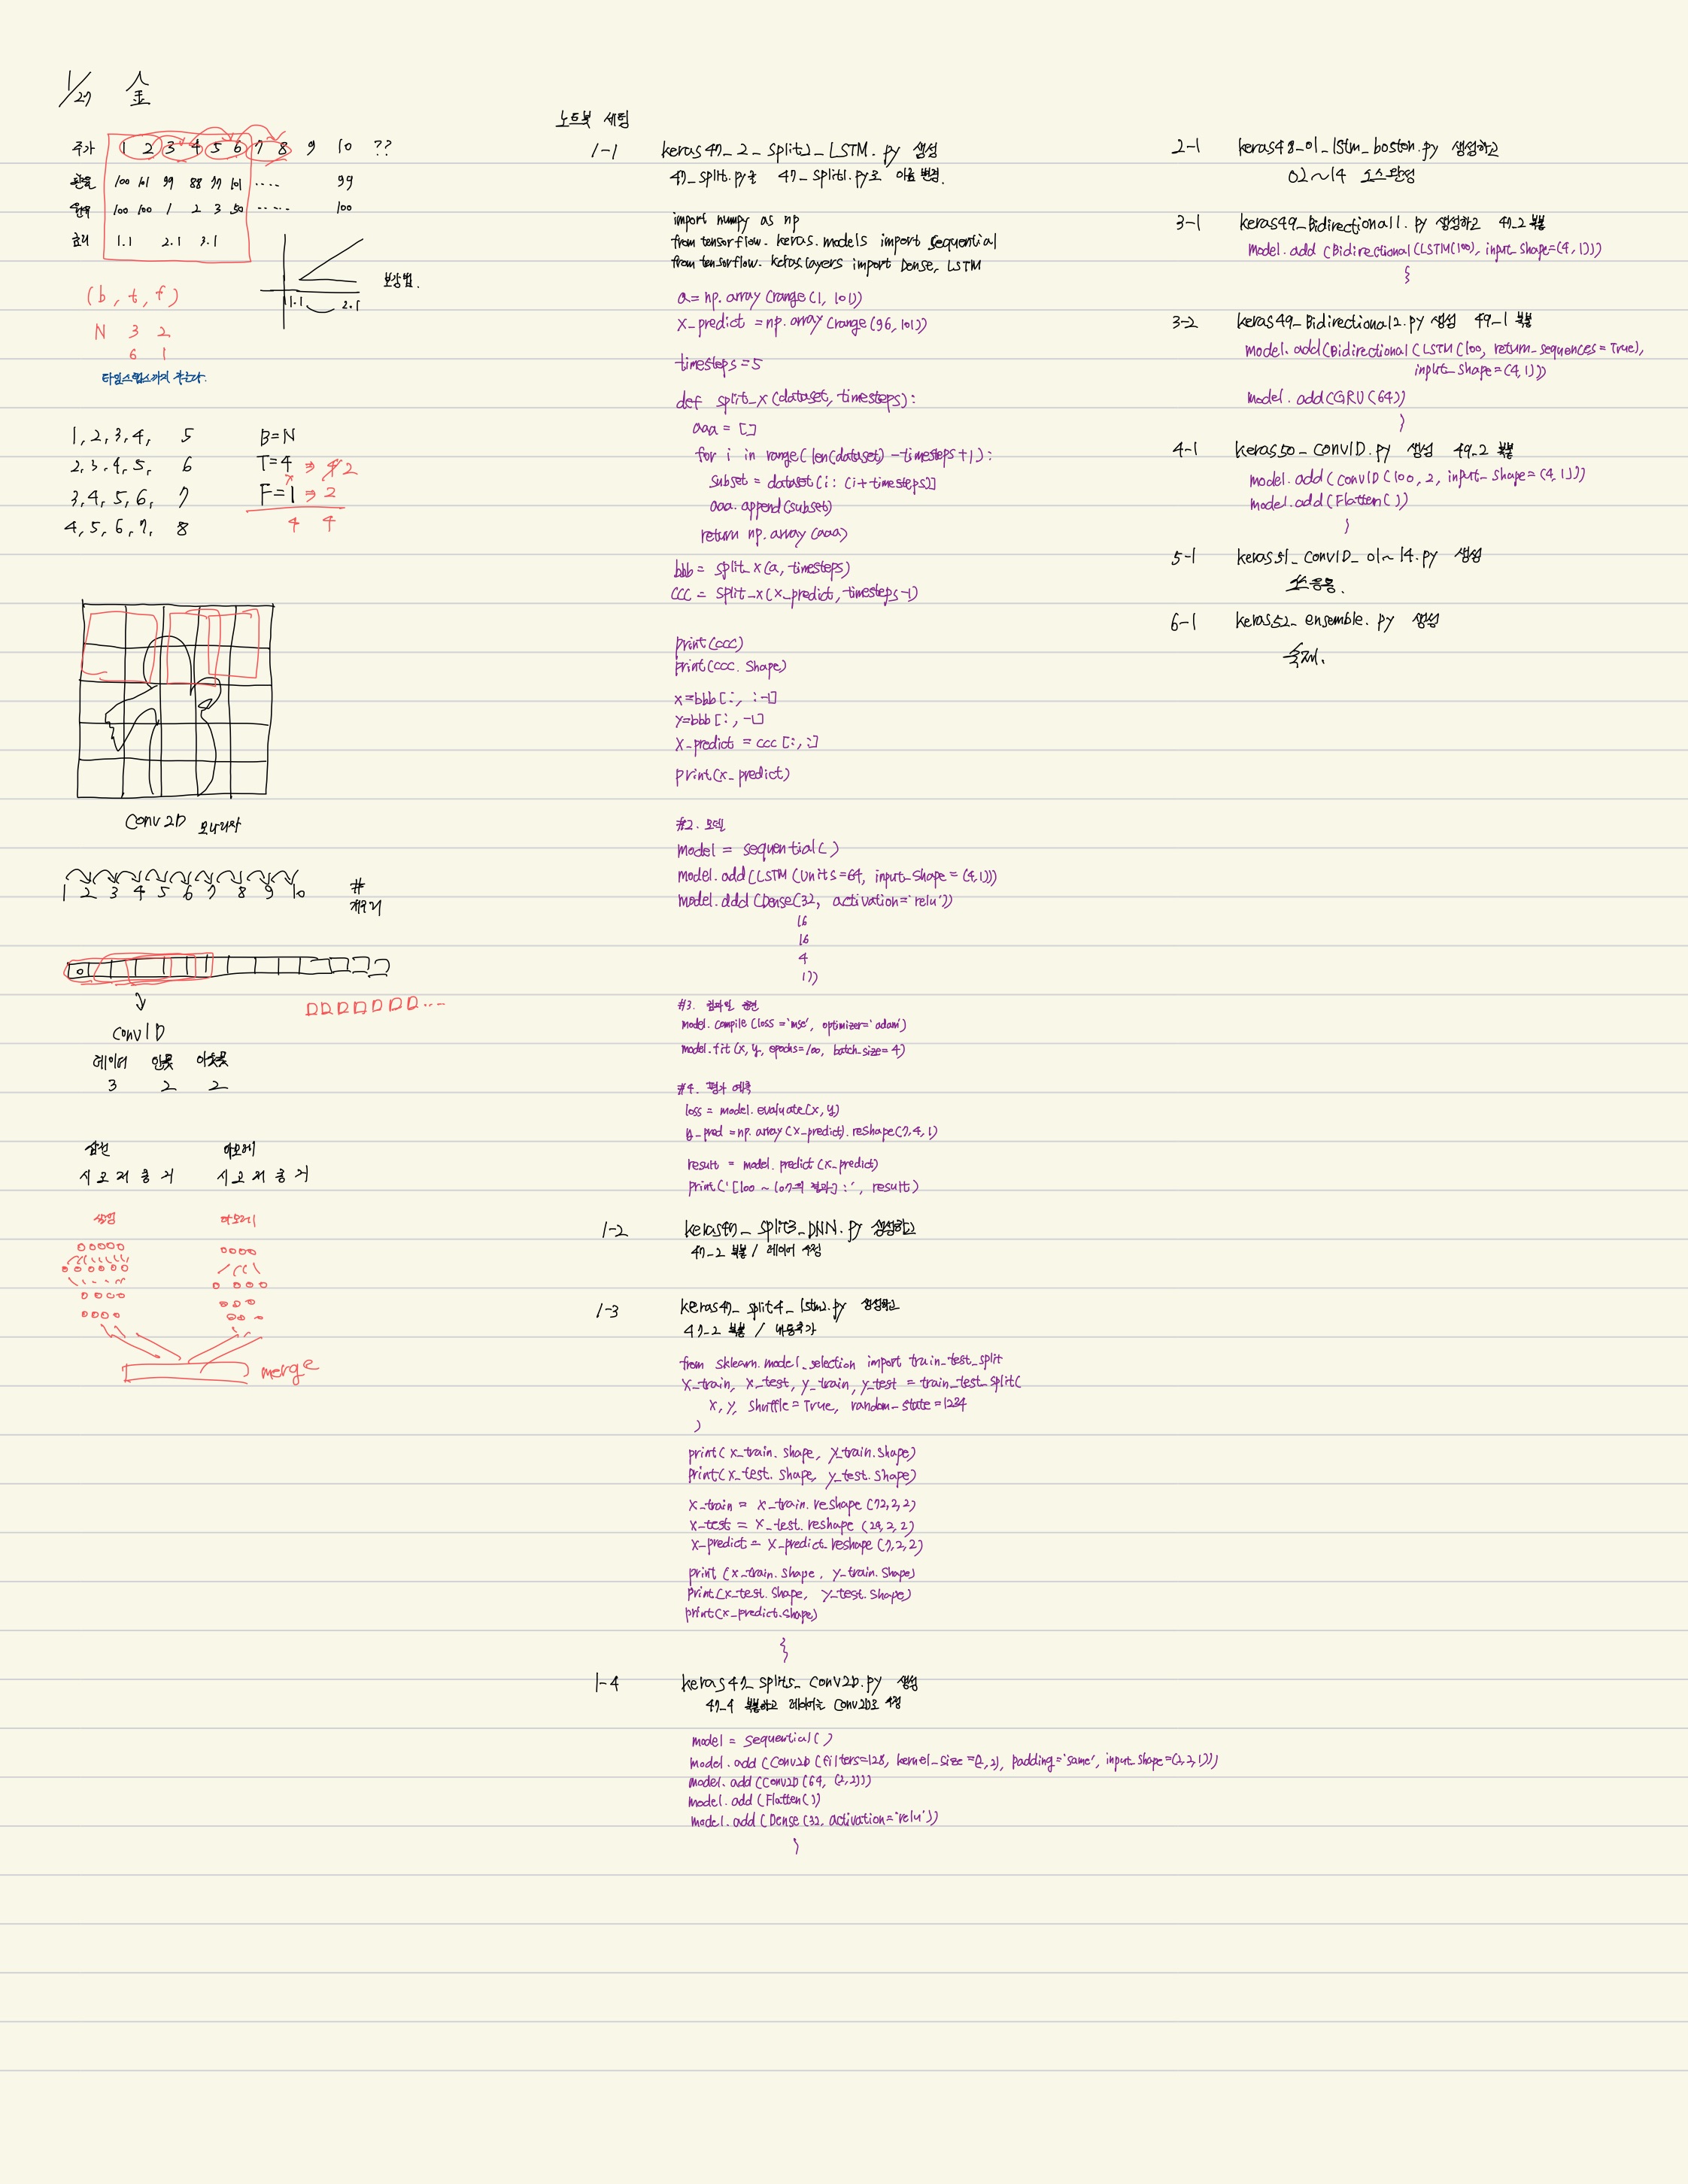 1/27 金
주가 1 2 3 4 5 6 7 8 9 10 ??
환율 100 101 99 88 77 101 ..... 99
100 100 1 2 3 50 ..... 100
금리 1.1 2.1 3.1
1.1 2.1 보강법.
(b, t, f)
N 3 2
6 1
타임스텝스까지 부른다.
1, 2, 3, 4, 5 B=N
2, 3, 4, 5, 6 T=4 ⇒ 4 2
3, 4, 5, 6, 7 F=1 ⇒ 2
4, 5, 6, 7, 8 4 4
Conv2D 모나리자
1 2 3 4 5 6 7 8 9 10 #
Conv1D
데이터 인풋 아웃풋
3 2 2
삼전 아모레
시 고 저 종 거 시 고 저 종 거
아모레
merge
노트북 세팅
1-1 keras47_2_split2_LSTM.py 생성
47_split.py을 47_split1.py로 이름 변경.
import numpy as np
from tensorflow.keras.models import Sequential
from tensorflow.keras.layers import Dense, LSTM
a = np.array(range(1, 101))
x_predict = np.array(range(96, 101))
timesteps = 5
def split_x(dataset, timesteps):
aaa = []
for i in range(len(dataset) - timesteps + 1):
subset = dataset[i: (i+timesteps)]
aaa.append(subset)
return np.array(aaa)
bbb = split_x(a, timesteps)
ccc = split_x(x_predict, timesteps-1)
print(ccc)
print(ccc.shape)
x=bbb[:, :-1]
y=bbb[:, -1]
x_predict = ccc[:, :]
print(x_predict)
#2. 모델
model = sequential()
model.add(LSTM(units=64, input_shape=(4,1)))
model.add(Dense(32, activation='relu'))
16
16
4
1))
#3. 컴파일 훈련
model.compile(loss='mse', optimizer='adam')
model.fit(x, y, epochs=100, batch_size=4)
#4. 평가 예측
loss = model.evaluate(x, y)
y_pred = np.array(x_predict).reshape(7,4,1)
result = model.predict(x_predict)
print('[100 ~ 107의 결과] :', result)
1-2 keras47_split3_DNN.py 생성하고
47_2 복붙 / 레이어 수정
1-3 keras47_split4_lstm2.py 생성하고
47_2 복붙 / 내용추가
from sklearn.model_selection import train_test_split
x_train, x_test, y_train, y_test = train_test_split(
x, y, shuffle=True, random_state=1234
)
print(x_train.shape, y_train.shape)
print(x_test.shape, y_test.shape)
x_train = x_train.reshape(72,2,2)
x_test = x_test.reshape(24,2,2)
x_predict = x_predict.reshape(7,2,2)
print(x_train.shape, y_train.shape)
print(x_test.shape, y_test.shape)
print(x_predict.shape)
1-4 keras47_split5_conv2D.py 생성
47_4 복붙하고 레이어는 Conv2D로 수정
model = Sequential()
model.add(Conv2D(filters=128, kernel_size=(2,2), padding='same', input_shape=(2,2,1)))
model.add(Conv2D(64, (2,2)))
model.add(Flatten())
model.add(Dense(32, activation='relu'))
2-1 keras48_01_lstm_boston.py 생성하고
02~14 소스완성
3-1 keras49_Bidirectional1.py 생성하고 47_2 복붙
model.add(Bidirectional(LSTM(100), input_shape=(4,1)))
3-2 keras49_Bidirectional2.py 생성 49_1 복붙
model.add(Bidirectional(LSTM(100, return_sequences=True),
input_shape=(4,1)))
model.add(GRU(64))
4-1 keras50_conv1D.py 생성 49_2 복붙
model.add(conv1D(100, 2, input_shape=(4,1)))
model.add(Flatten())
5-1 keras51_conv1D_01~14.py 생성
6-1 keras52_ensemble.py 생성
숙제.